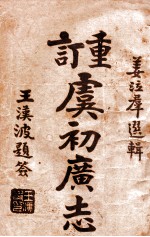 姜泣羣選輯
重訂
虞初廣志
王漢波題簽